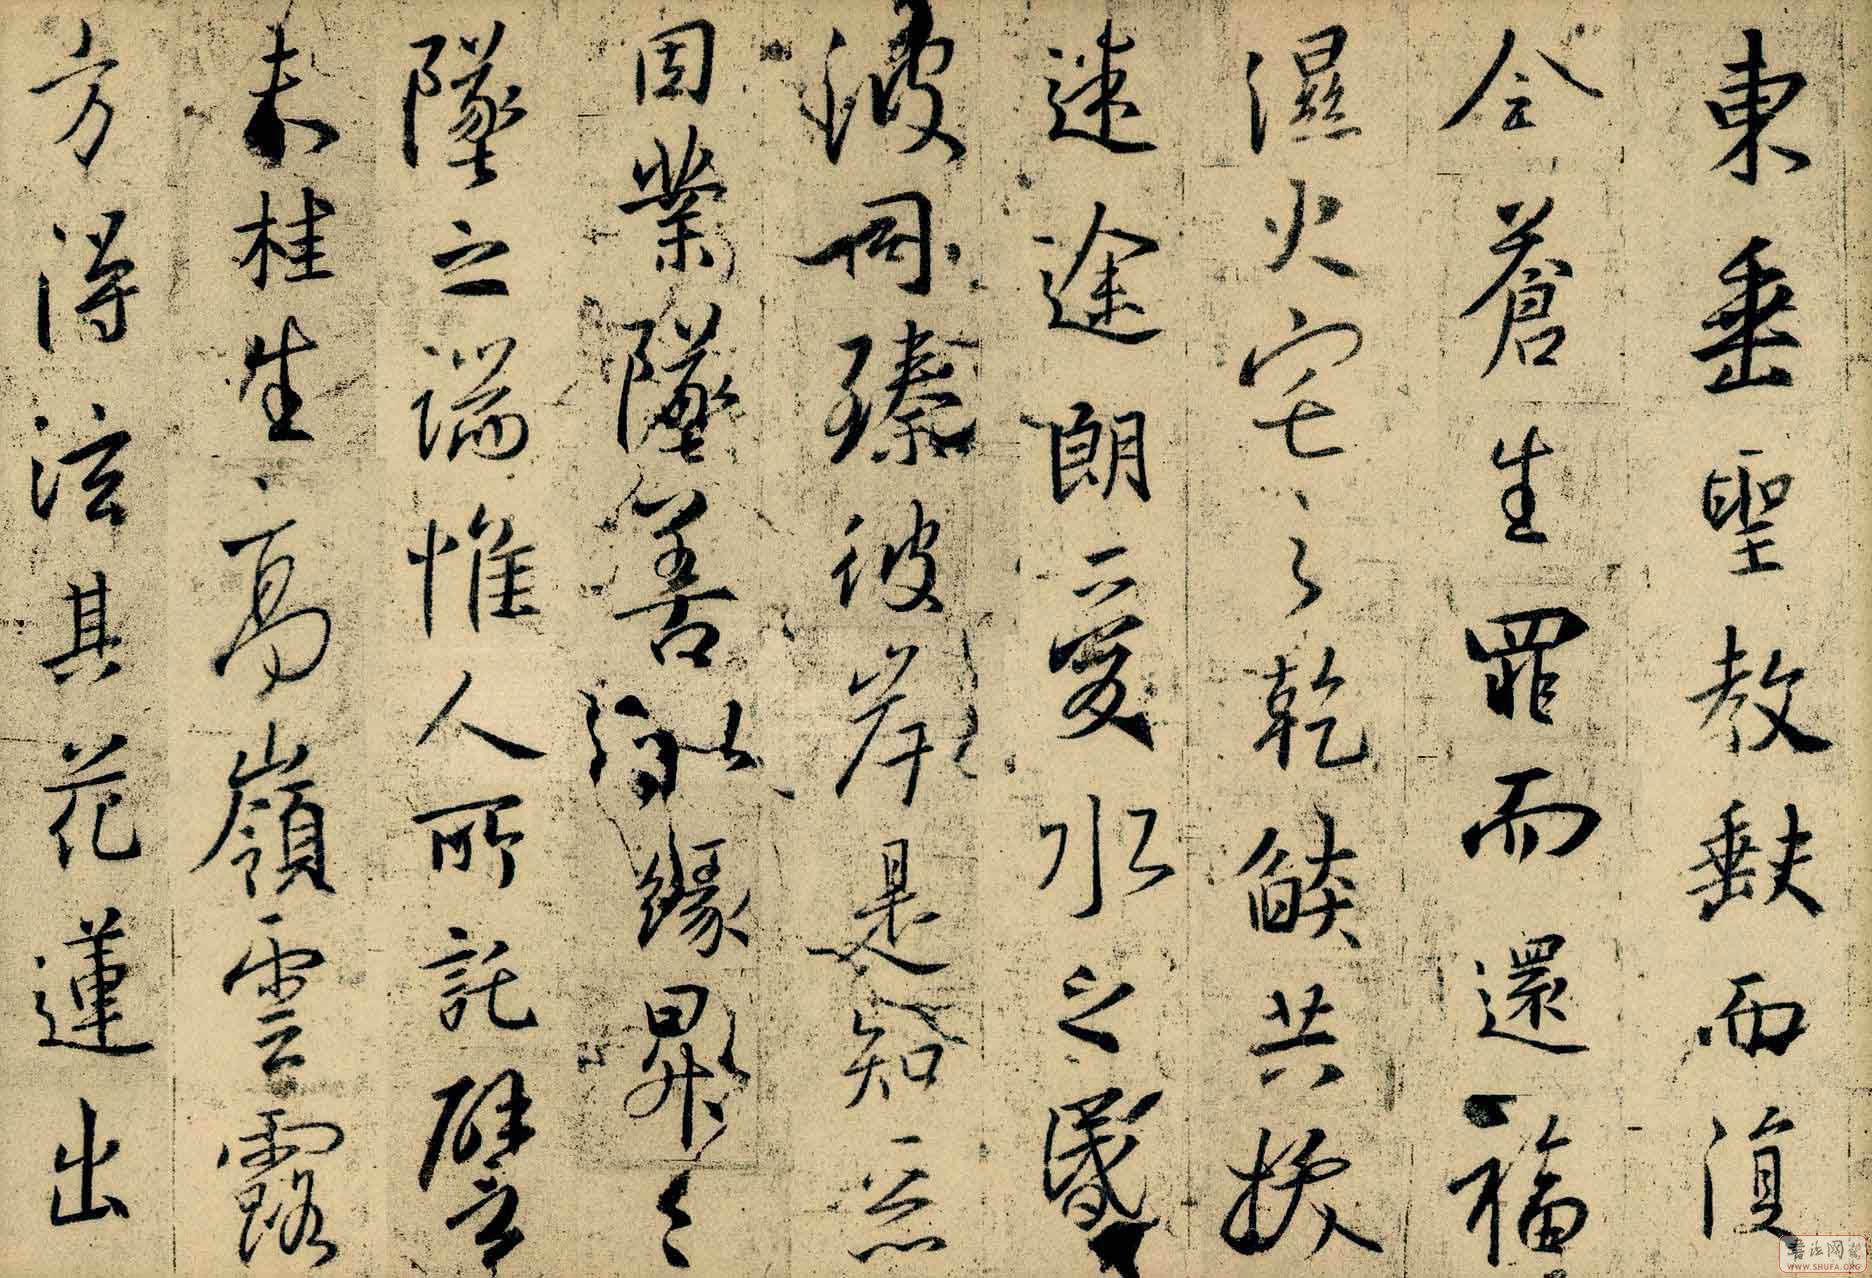 東垂聖教缺而復
全蒼生罪而還福
濕火宅之乾燄共拔
迷途朗愛水之昏
波同臻彼岸是知惡
因業墜善以緣昇々
墜之端惟人所託譬
夫桂生高嶺雲露
方得泫其花蓮出
書法网
WWW.SHUFA.ORG